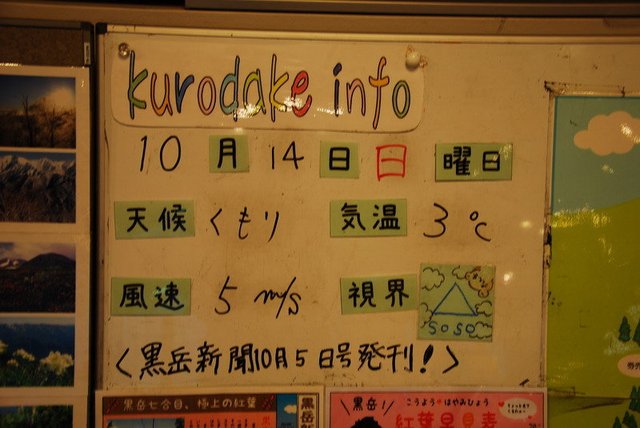 kurodake info
10月14日 日 曜日
天候 くもり 気温 3℃
風速 5 m/s 視界 SOSO
<黒岳新聞10月5日号発刊!>
黒岳七合目、極上の紅葉
黒岳
\黒岳!/ こうよう はやみひょう
紅葉早見表